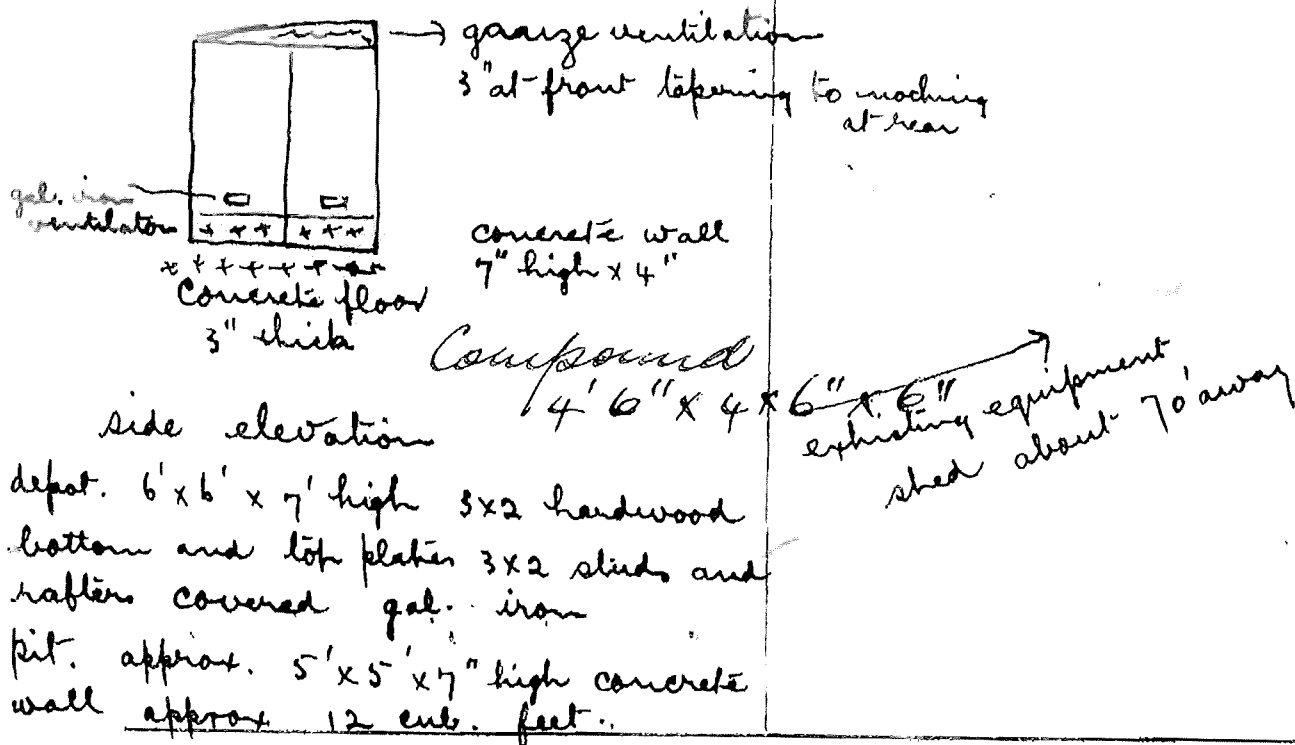 gaarze ventilation
3" at front tapering to noching
at rear
gal. iron
ventilators
concrete wall
7" high x 4"
Concrete floor
3" thick
Compound
4' 6" x 4 x 6" x 6"
exhisting equipment
shed about 70' away
side elevation
depot. 6' x 6' x 7' high 3x2 hardwood
bottom and top plates 3x2 studs and
rafters covered gal. iron
pit. approx. 5' x 5' x 7" high concrete
wall approx 12 cub. feet.